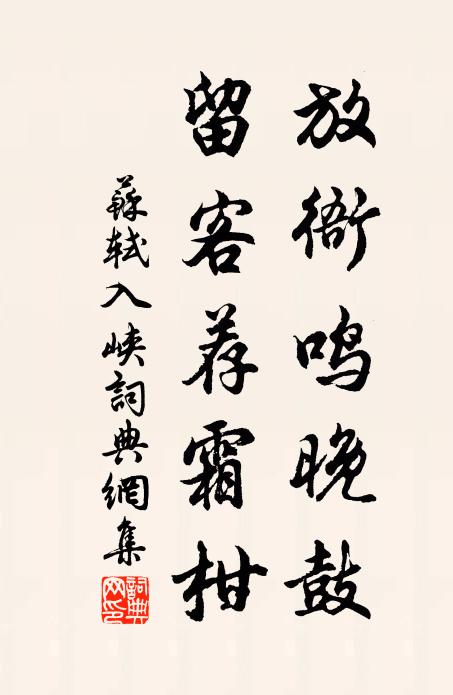 放衙鸣晚鼓
留客荐霜柑
蘇軾入峽詞典網集
詞典网印